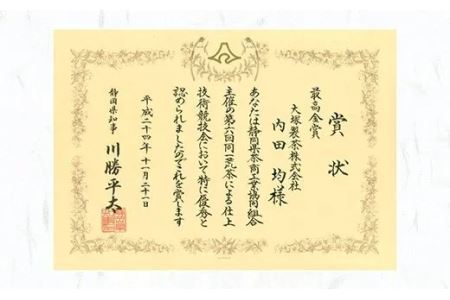 賞状
最高金賞
大塚製茶株式会社
内田 均様
あなたは静岡県茶商工業協同組合
主催の第六回同一荒茶による仕上
技術競技会において特に優秀と
認められましたのでこれを賞します
平成二十四年十一月二十一日
静岡県知事 川勝平太